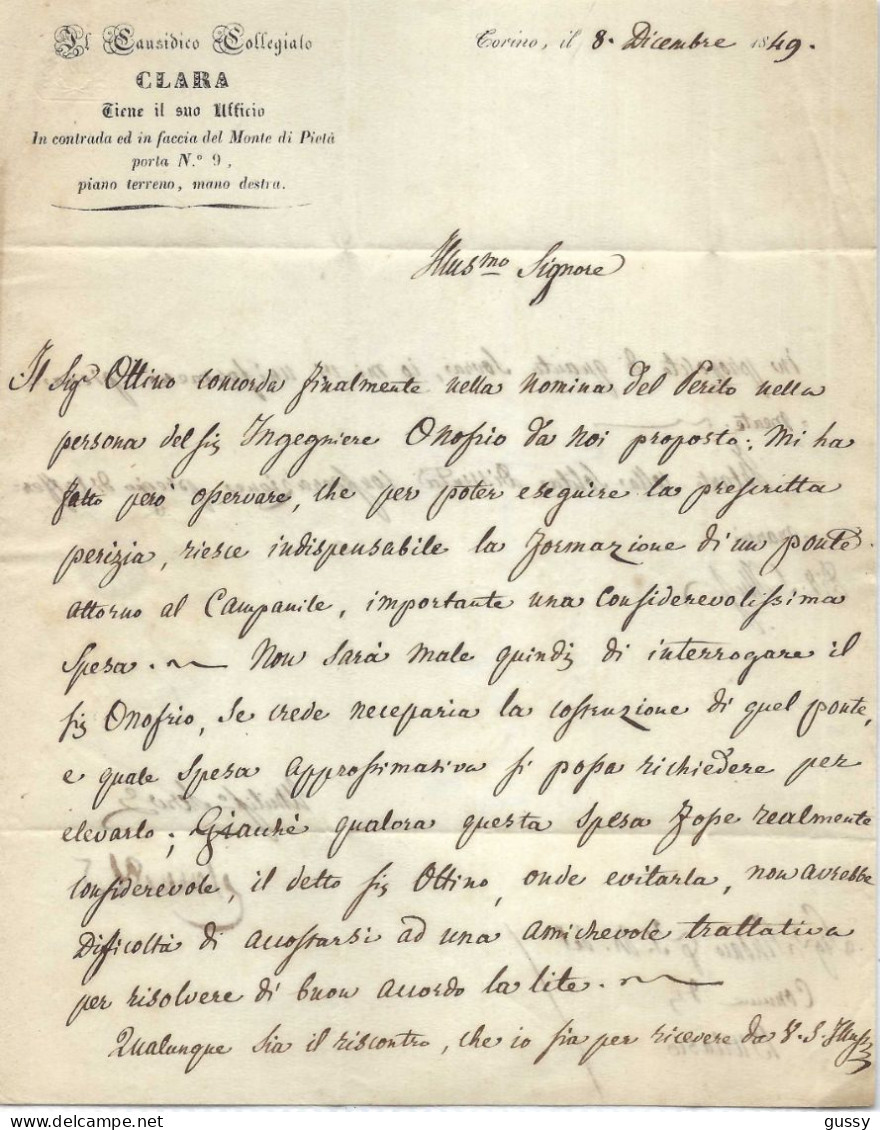 Il Causidico Collegiato
CLARA
Tiene il suo Ufficio
In contrada ed in faccia del Monte di Pietà
porta N.º 9,
piano terreno, mano destra.
Torino, il 8. Dicembre 1849.
Illusmo Signore
Il Sigr Ottino concorda finalmente nella nomina del Perito nella
persona del Sig Ingegniere Onofrio da noi proposto; Mi ha
fatto però osservare, che per poter eseguire la prescritta
perizia, riesce indispensabile la formazione di un ponte
attorno al Campanile, importante una Considerevolissima
Spesa. — Non sarà male quindi di interrogare il
Sig Onofrio, se crede necessaria la costruzione di quel ponte,
e quale spesa approssimativa si possa richiedere per
elevarlo; Giacchè qualora questa spesa fosse realmente
Considerevole, il detto Sig Ottino, onde evitarla, non avrebbe
Difficoltà di accostarsi ad una amichevole trattativa
per risolvere di buon accordo la lite. —
Qualunque sia il riscontro, che io sia per ricevere da V. S. Illus
gussy